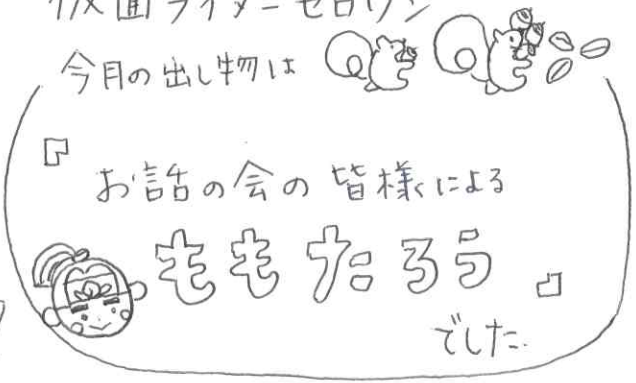 仮面ライダーゼロワン
今月の出し物は
『
お話の会の皆様による
ももたろう
』
でした.